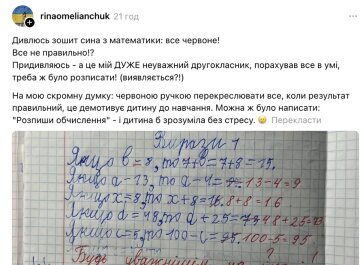 rinaomelianchuk 21 год
Дивлюсь зошит сина з математики: все червоне!
Все не правильно!?
Придивляюсь - а це мій ДУЖЕ неуважний другокласник, порахував все в умі, треба ж було розписати! (виявляється?!)
На мою скромну думку: червоною ручкою перекреслювати все, коли результат правильний, це демотивує дитину до навчання. Можна ж було написати: "Розпиши обчислення" - і дитина б зрозуміла без стресу. Перекласти
Вирази 1
Якщо b=8, то 7+b=7+8=15.
Якщо a-13, то a-4=9. 13-4=9
Якщо x=8, то x+8=16. 8+8=16
Якщо d=48, то d+25=73 48+25=73
Якщо c=5, то 100-c=95. 100-5=95
Будь уважнішим